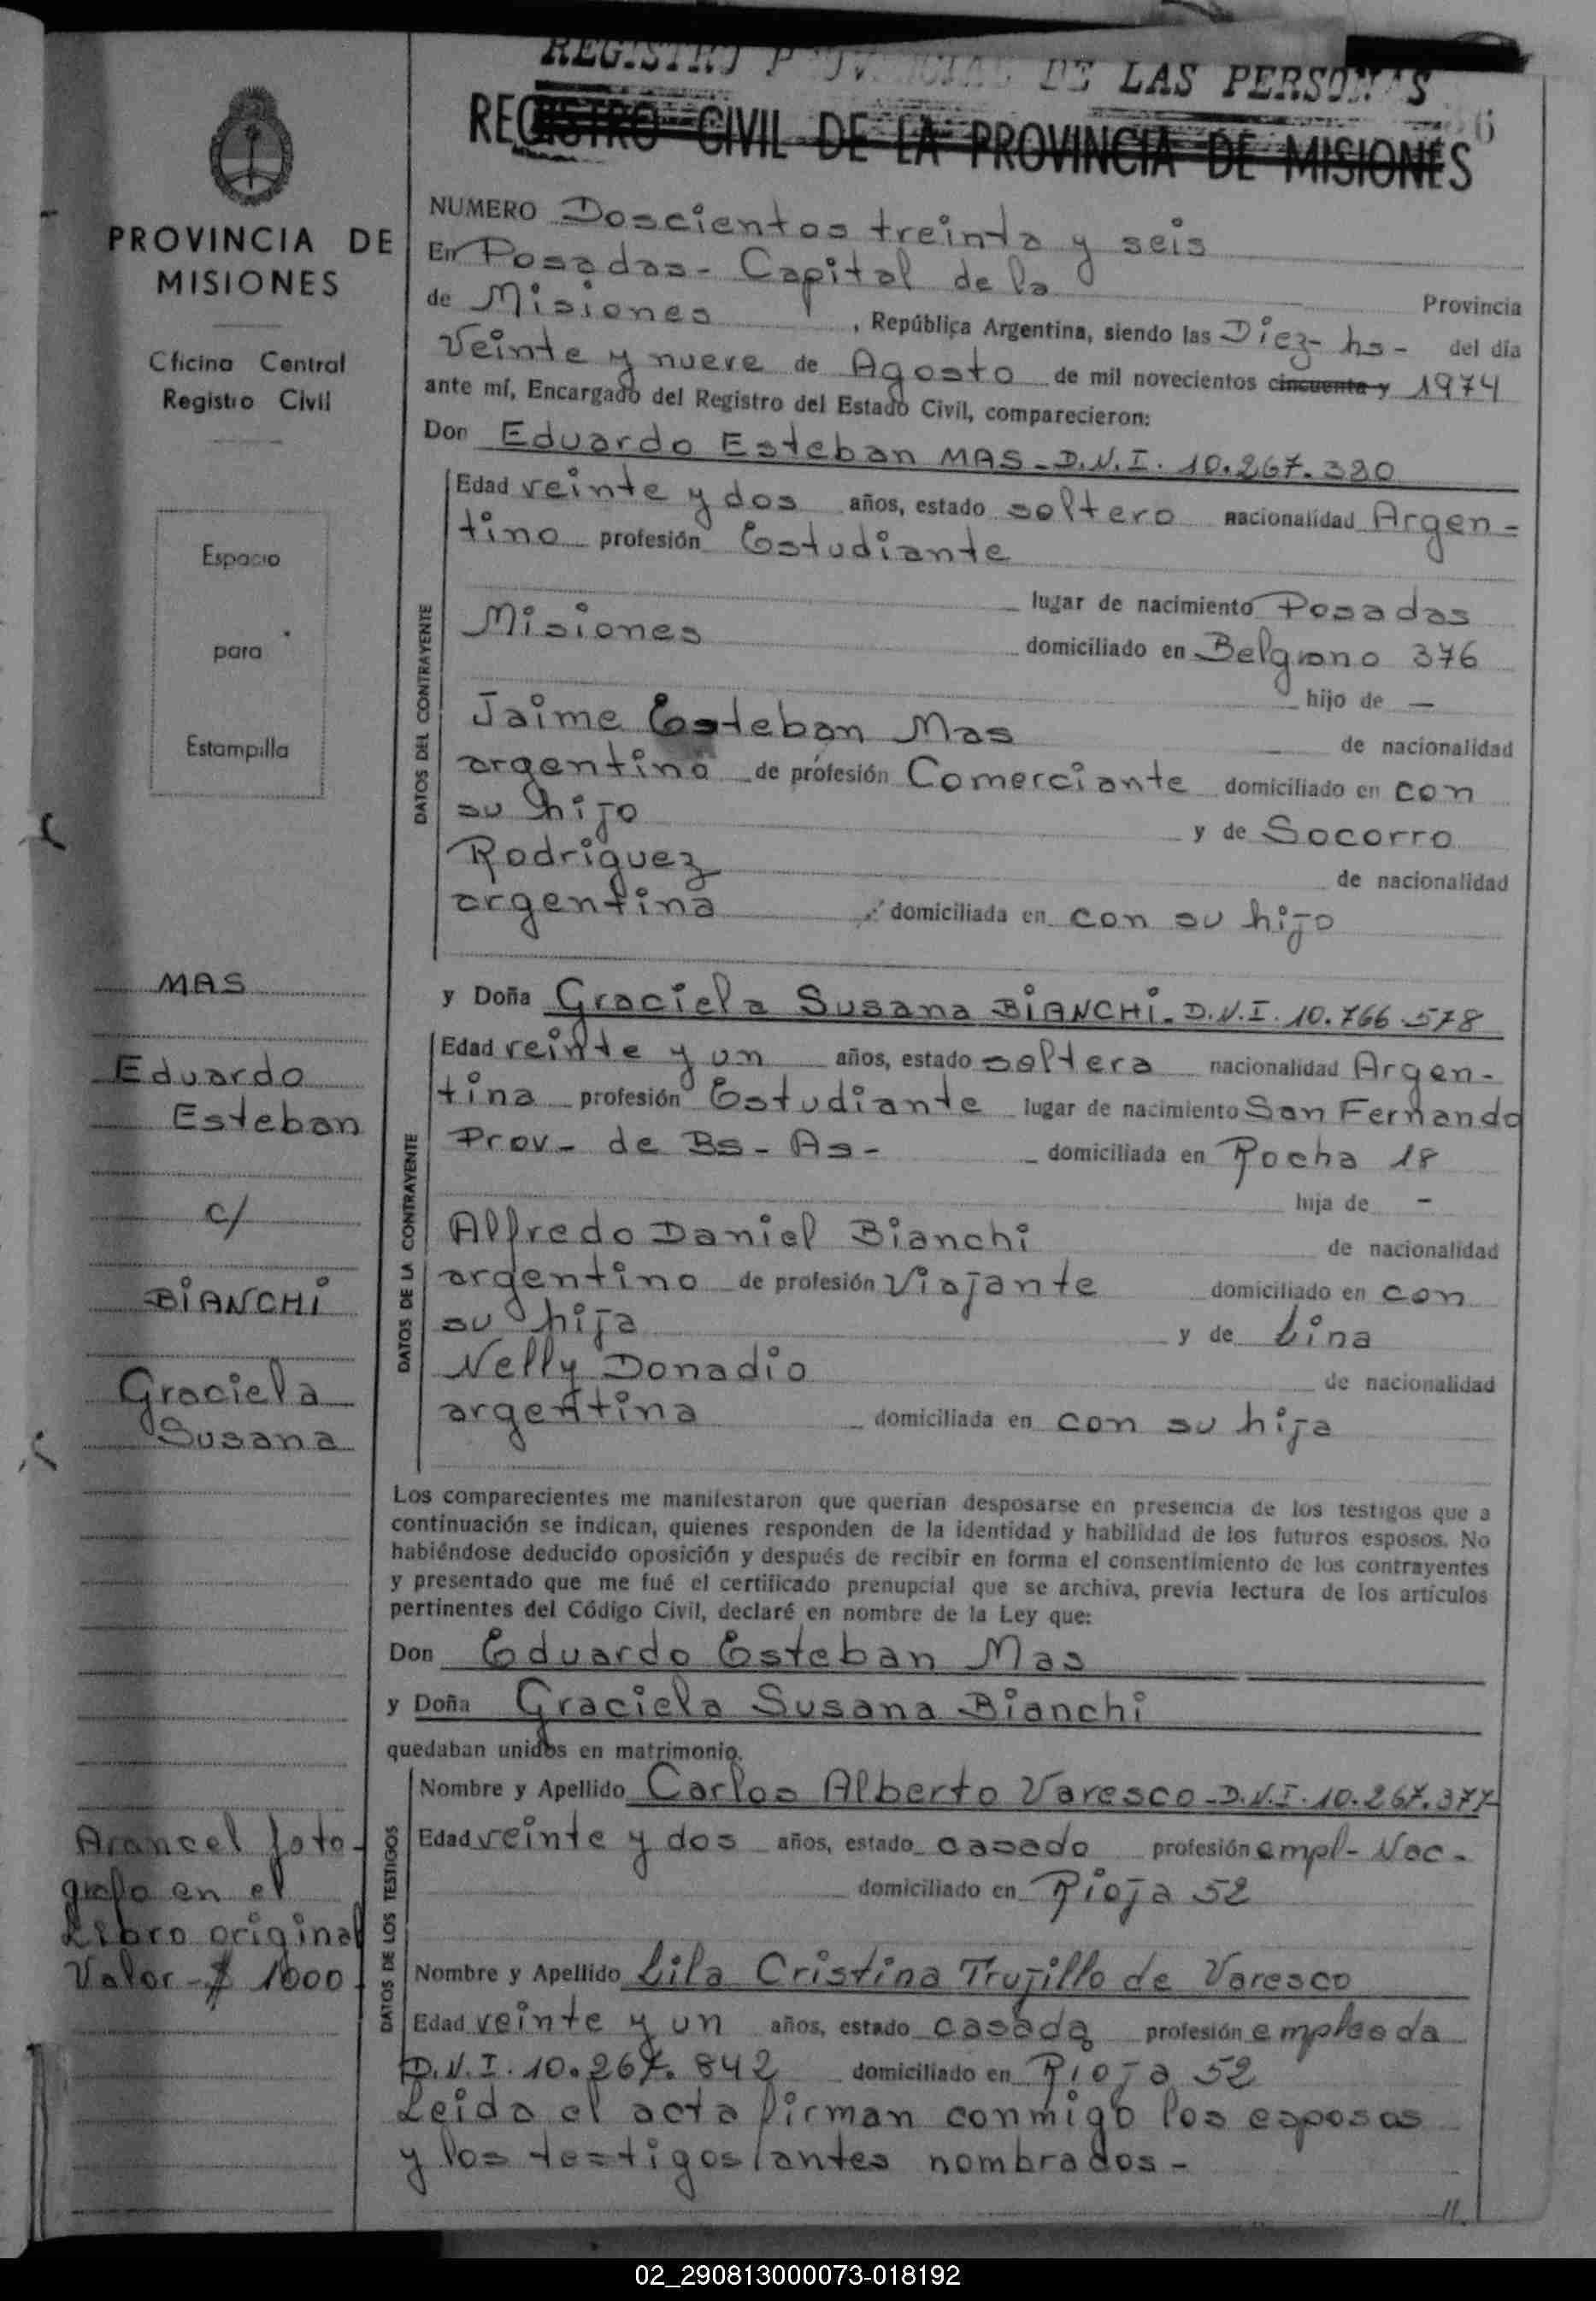 REGISTRO PROVINCIAL DE LAS PERSONAS
REGISTRO CIVIL DE LA PROVINCIA DE MISIONES
PROVINCIA DE
MISIONES
Oficina Central
Registro Civil
Espacio
para
Estampilla
MAS
Eduardo
Esteban
c/
BiANCHi
Graciela
Susana
Arancel foto-
grafo en el
Libro original
Valor-$ 1000
NUMERO Doscientos treinta y seis
En Posadas- Capital de la Provincia
de Misiones, República Argentina, siendo las Diez- hs- del día
Veinte y nueve de Agosto de mil novecientos cincuenta y 1974
ante mí, Encargado del Registro del Estado Civil, comparecieron:
Don Eduardo Esteban MAS- D.N.I. 10.267.320
DATOS DEL CONTRAYENTE
Edad veinte y dos años, estado soltero nacionalidad Argen-
tino profesión Estudiante
lugar de nacimiento Posadas
Misiones domiciliado en Belgrano 376
hijo de —
Jaime Esteban Mas de nacionalidad
argentino de profesión Comerciante domiciliado en con
su hijo y de Socorro
Rodriguez de nacionalidad
argentina domiciliada en con su hijo
y Doña Graciela Susana BiANCHi- D.N.I. 10.766.578
DATOS DE LA CONTRAYENTE
Edad veinte y un años, estado soltera nacionalidad Argen-
tina profesión Estudiante lugar de nacimiento San Fernando
Prov- de Bs- As- domiciliada en Rocha 18
hija de -
Alfredo Daniel Bianchi de nacionalidad
argentino de profesión Viajante domiciliado en con
su hija y de Lina
Nelly Donadio de nacionalidad
argentina domiciliada en con su hija
Los comparecientes me manifestaron que querían desposarse en presencia de los testigos que a
continuación se indican, quienes responden de la identidad y habilidad de los futuros esposos. No
habiéndose deducido oposición y después de recibir en forma el consentimiento de los contrayentes
y presentado que me fué el certificado prenupcial que se archiva, previa lectura de los artículos
pertinentes del Código Civil, declaré en nombre de la Ley que:
Don Eduardo Esteban Mas
y Doña Graciela Susana Bianchi
quedaban unidos en matrimonio.
DATOS DE LOS TESTIGOS
Nombre y Apellido Carlos Alberto Varesco-D.N.I. 10.267.377-
Edad veinte y dos años, estado casado profesión empl- Nac-
domiciliado en Rioja 52
Nombre y Apellido Lila Cristina Trujillo de Varesco
Edad veinte y un años, estado casada profesión empleada
D.N.I. 10.267.842 domiciliado en Rioja 52
Leida el acta firman conmigo los esposos
y los testigos antes nombrados-
//.
02_290813000073-018192